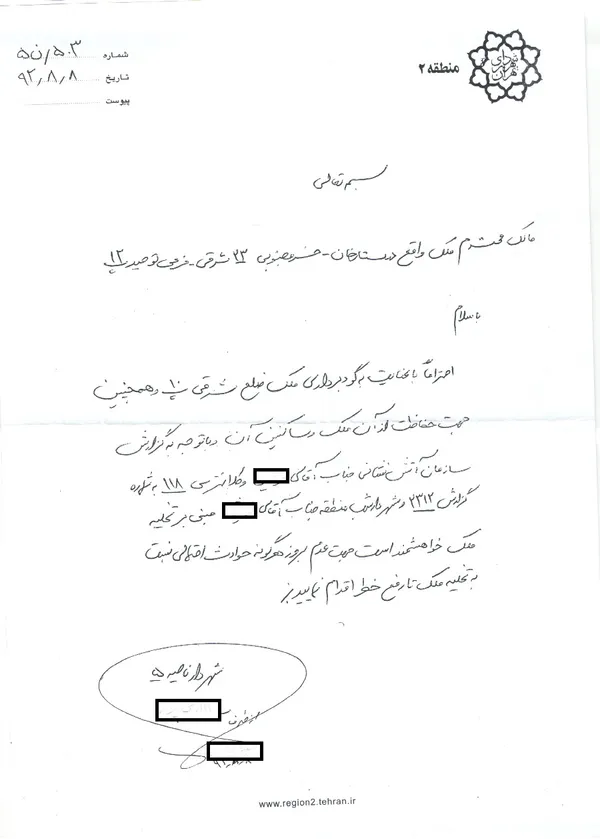 شهرداری تهران
منطقه ۲
شماره ۵ن/۵۰۳
تاریخ ۹۲،۸،۸
پیوست
بسمه تعالی
مالک محترم ملک واقع در ستارخان - خسرو جنوبی ۳۳ شرقی - فرعی توحید پ ۱۲
با سلام
احتراماً با عنایت به گودبرداری ملک ضلع شرقی پ ۱۰ و همچنین
جهت حفاظت از آن ملک و ساکنین آن و با توجه به گزارش
سازمان آتش نشانی جناب آقای و کلانتری ۱۱۸ به شماره
گزارش ۲۳۱۲ و شهردار منطقه جناب آقای مبنی بر تخلیه
ملک خواهشمند است جهت عدم بروز هرگونه حوادث احتمالی نسبت
به تخلیه ملک تا رفع خطر اقدام نمایید
شهردار ناحیه ۵
۹۲،۸،۸
www.region2.tehran.ir